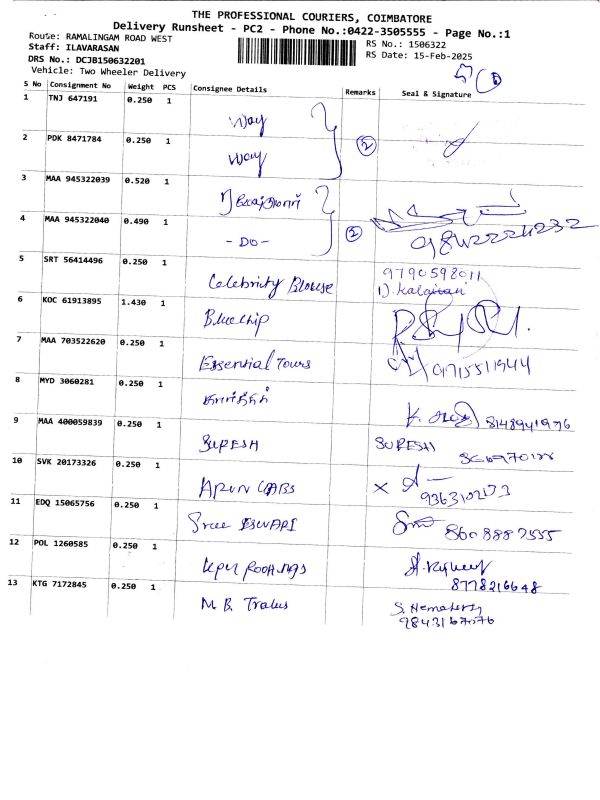 THE PROFESSIONAL COURIERS, COIMBATORE
Delivery Runsheet - PC2 - Phone No.:0422-3505555 - Page No.:1
Route: RAMALINGAM ROAD WEST
Staff: ILAVARASAN
DRS No.: DCJB150632201
Vehicle: Two Wheeler Delivery
RS No.: 1506322
RS Date: 15-Feb-2025
S No Consignment No Weight PCS Consignee Details Remarks Seal & Signature
1 TNJ 647191 0.250 1 Way
2 PDK 8471784 0.250 1 Way 2
3 MAA 945322039 0.520 1
4 MAA 945322040 0.490 1 - DO - 2
5 SRT 56414496 0.250 1 Celebrity Blouse 9790598011
D. Kalaivani
6 KOC 61913895 1.430 1 Bluechip
7 MAA 703522620 0.250 1 Essential Tours 9715511944
8 MYD 3060281 0.250 1 8148941976
9 MAA 400059839 0.250 1 SURESH SURESH
10 SVK 20173326 0.250 1 ARUN LABS
11 EDQ 15065756 0.250 1 Sree ESWARI 8608887555
12 POL 1260585 0.250 1 KPM ROOFINGS
8778216648
13 KTG 7172845 0.250 1 M. B. Trades
9843167076